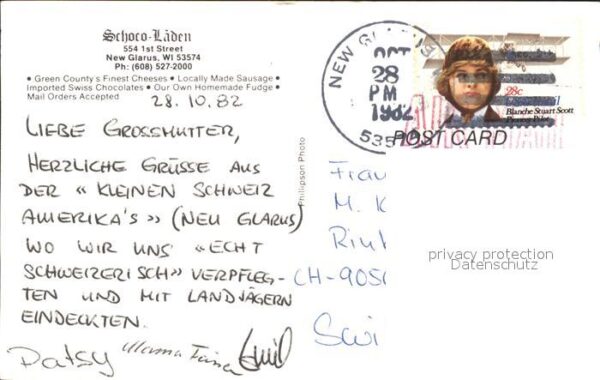 Schoco-Läden
554 1st Street
New Glarus, WI 53574
Ph: (608) 527-2000
• Green County's Finest Cheeses • Locally Made Sausage •
Imported Swiss Chocolates • Our Own Homemade Fudge •
Mail Orders Accepted
28.10.82
LIEBE GROSSMUTTER,
HERZLICHE GRÜSSE AUS
DER «KLEINEN SCHWEIZ
AMERIKA'S» (NEW GLARUS)
WO WIR UNS «ECHT
SCHWEIZERISCH» VERPFLEG-
TEN UND MIT LANDJÄGERN
EINDECKTEN.
Patsy Emil
Phillipson Photo
NEW GLARUS
OCT
28
PM
1982
28c
Blanche Stuart Scott
Pioneer Pilot
POST CARD
Frau
M. K
CH-9050
privacy protection
Datenschutz